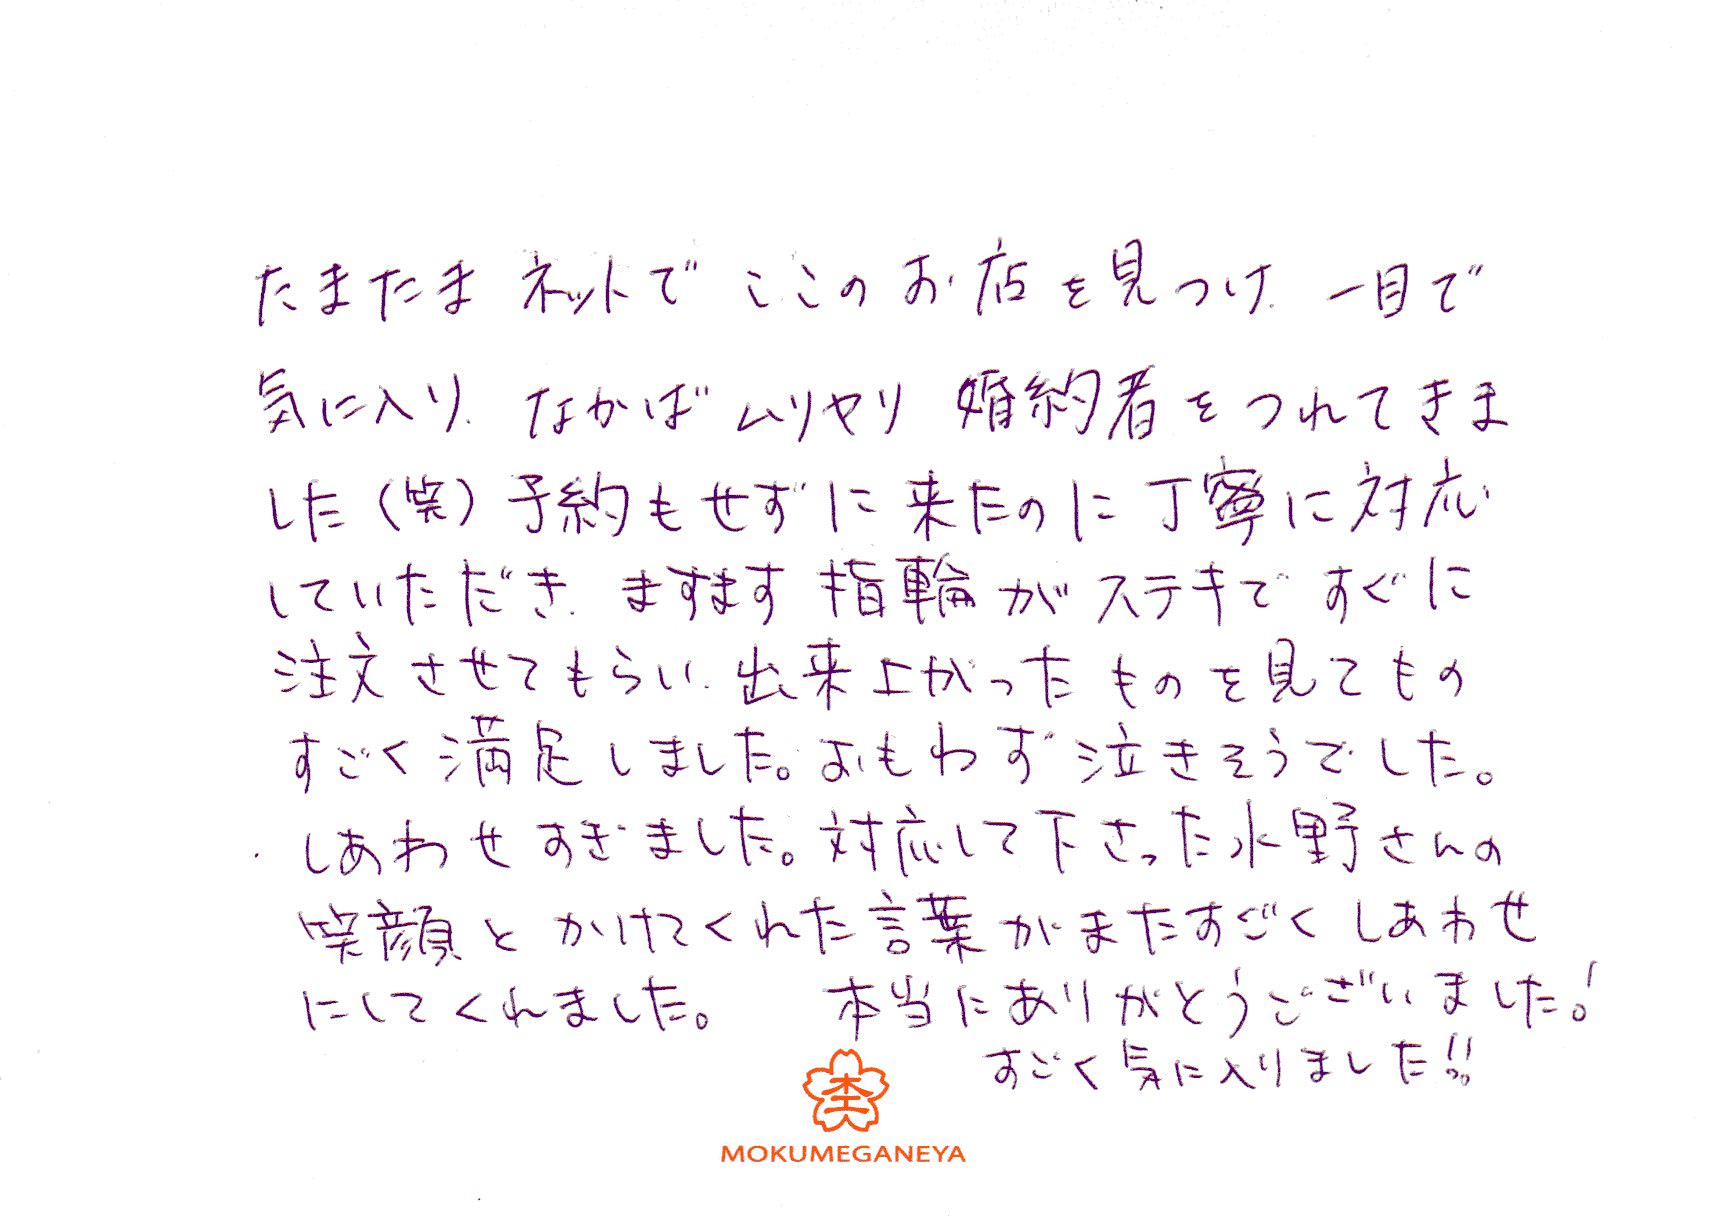 たまたま ネットで ここの お店を見つけ、一目で
気に入り、なかば ムリヤリ 婚約者をつれてきま
した（笑）予約もせずに来たのに丁寧に対応
していただき、ますます指輪がステキですぐに
注文させてもらい、出来上がったものを見てもの
すごく満足しました。おもわず泣きそうでした。
しあわせすぎました。対応して下さった水野さんの
笑顔とかけてくれた言葉がまたすごくしあわせ
にしてくれました。 本当にありがとうございました！
すごく気に入りました!!
MOKUMEGANEYA